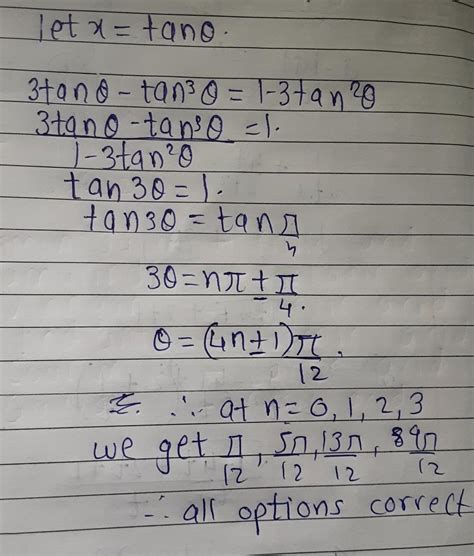 let x = tanθ.
3tanθ - tan³θ = 1-3tan²θ
3tanθ - tan³θ = 1.
1-3tan²θ
tan3θ = 1.
tan3θ = tan π/4
3θ = nπ ± π/4.
θ = (4n±1)π/12.
∴ at n = 0, 1, 2, 3
we get π/12, 5π/12, 13π/12, 89π/12
∴ all options correct